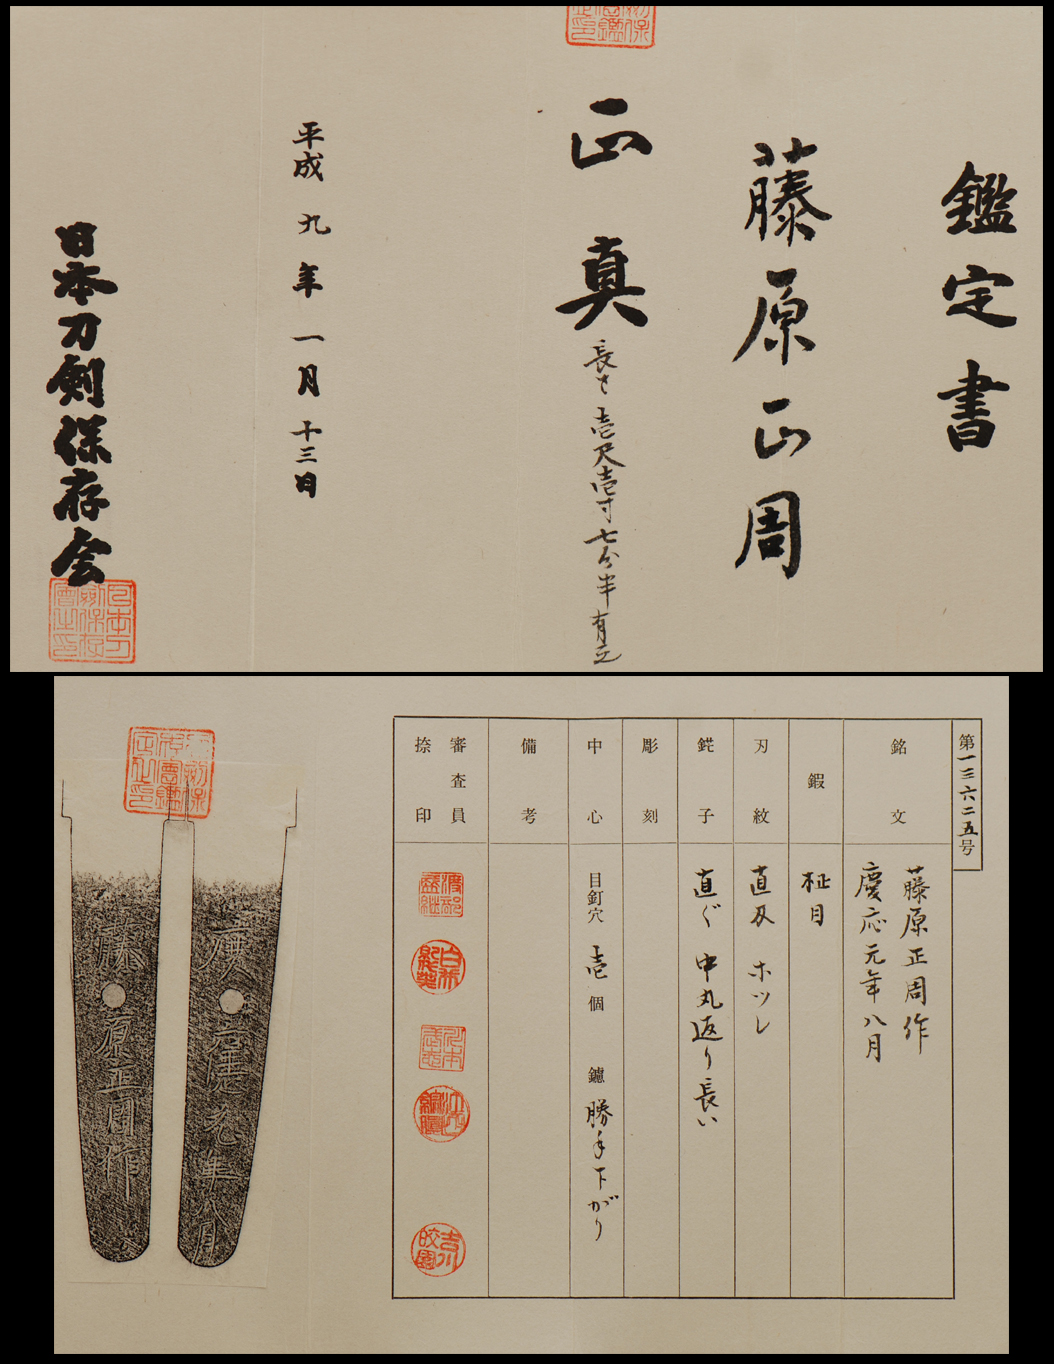 鑑定書
藤原正周
正真
長さ壱尺壱寸七分半有之
平成九年一月十三日
日本刀剣保存会
第一三六二五号
銘文
藤原正周作
慶応元年八月
鍜
柾目
刃紋
直刃 ホツレ
鋩子
直ぐ 中丸返り長い
彫刻
中心
目釘穴 壱 個 鑢 勝手下がり
備考
審査員
捺印
慶応元年八月
藤原正周作